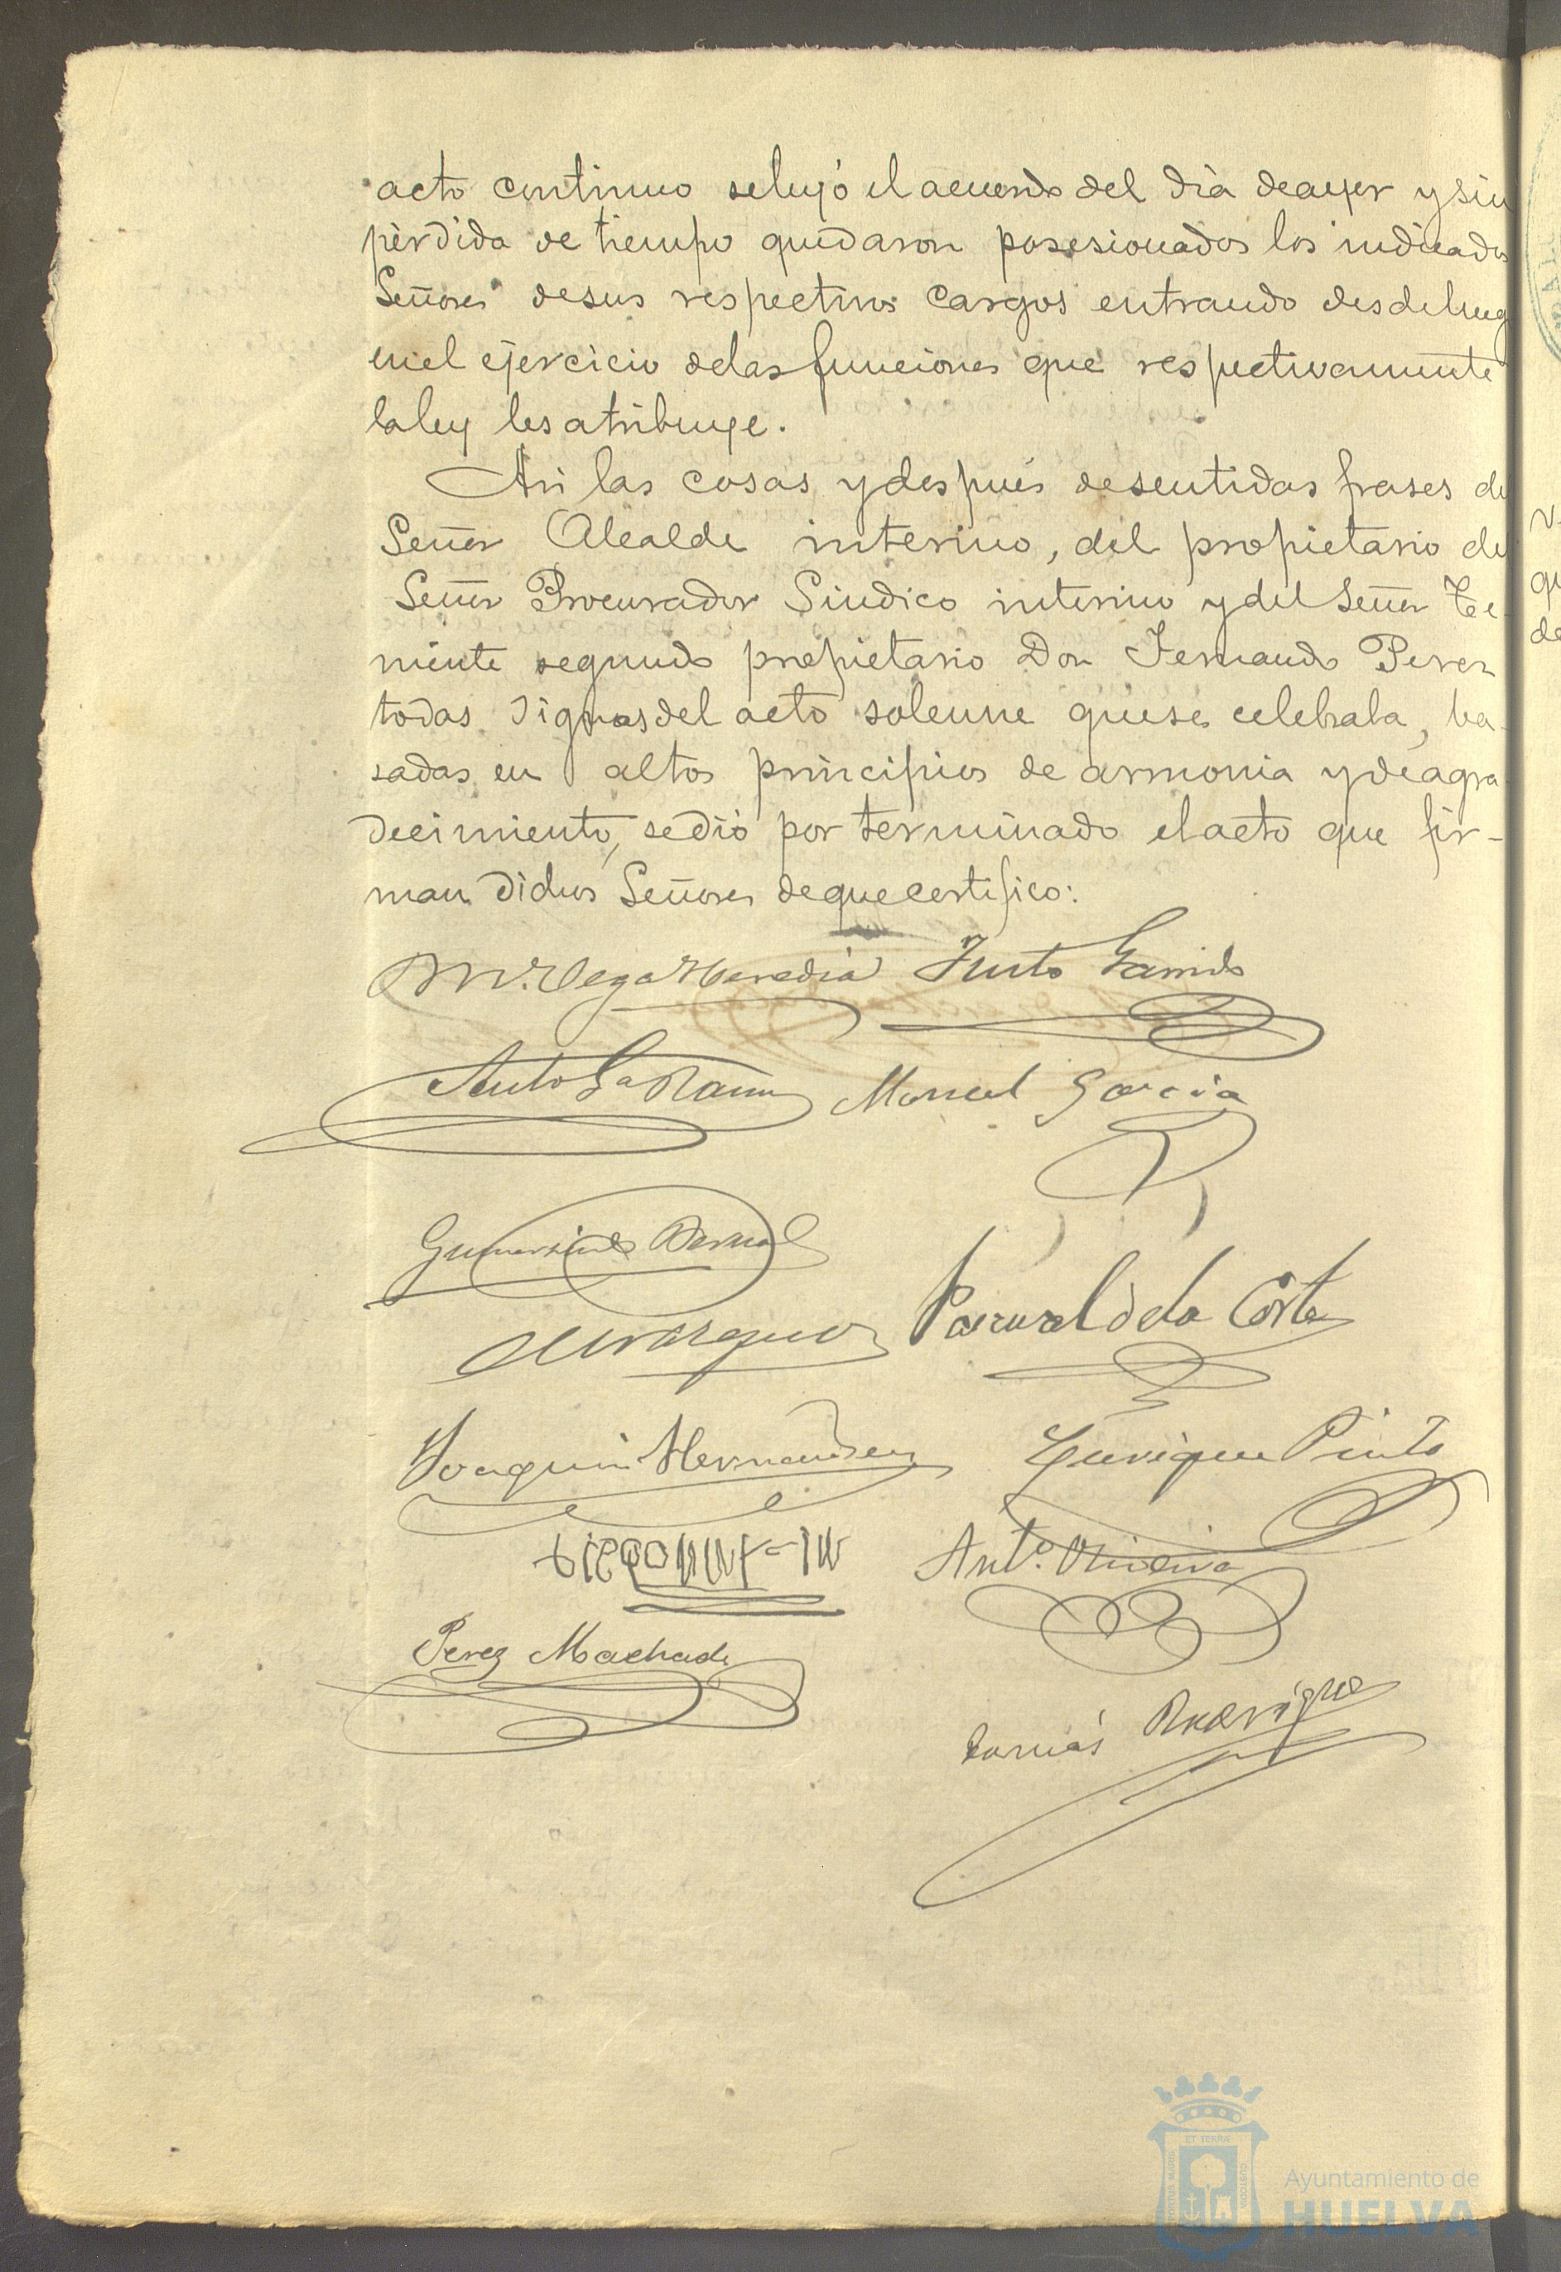 acto continuo se leyó el acuerdo del día de ayer y sin
pérdida de tiempo quedaron posesionados los indicados
Señores de sus respectivos cargos entrando desde lueg
en el ejercicio de las funciones que respectivamente
la ley les atribuye.
Asi las cosas y después de sentidas frases de
Señor Alcalde interino, del propietario de
Señor Procurador Sindico interino y del Señor Te-
niente segundo propietario Don Fernando Perez
todas dignas del acto solemne que se celebraba, ba-
sadas en altos principios de armonia y de agra
decimiento, se dió por terminado el acto que fir-
man dichos Señores de que certifico:
M. Vega Heredia Justo Garrido
Manuel García
Gumersindo Bernal
Pascual de la Corte
Joaquin Hernandez Enrique Pinto
Ant.º Oliveira
Perez Machado
Tomás Rodríguez
Ayuntamiento de
HUELVA